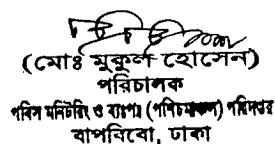 (মোঃ মুকুল হোসেন)
পরিচালক
পবিস মনিটরিং ও ব্যবস্থাঃ (পশ্চিমাঞ্চল) পরিদপ্তর
বাপবিবো, ঢাকা